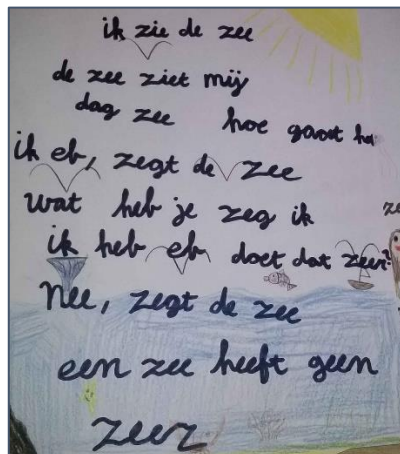 ik zie de zee
de zee ziet mij
dag zee hoe gaat
ik eb, zegt de zee
wat heb je zeg ik
ik heb eb doet dat zeer?
Nee, zegt de zee
een zee heeft geen
zeer